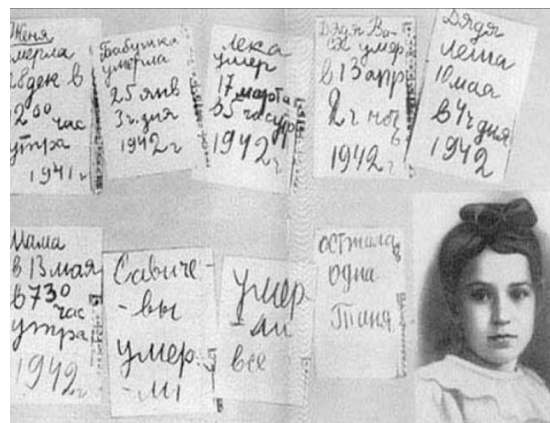 Женя
умерла
28 дек в
1200 час
утра
1941 г
Бабушка
умерла
25 янв
3 ч. дня
1942 г
Лека
умер
17 марта
в 5 час утр
1942 г
Дядя Ва-
ся умер
в 13 апр
2 ч ноч
1942 г
Дядя
Леша
10 мая
в 4 ч дня
1942
Мама
в 13 мая
в 730
час
утра
1942 г
Савиче-
-вы
умер-
-ли
умер
-ли
все
осталась
одна
Таня